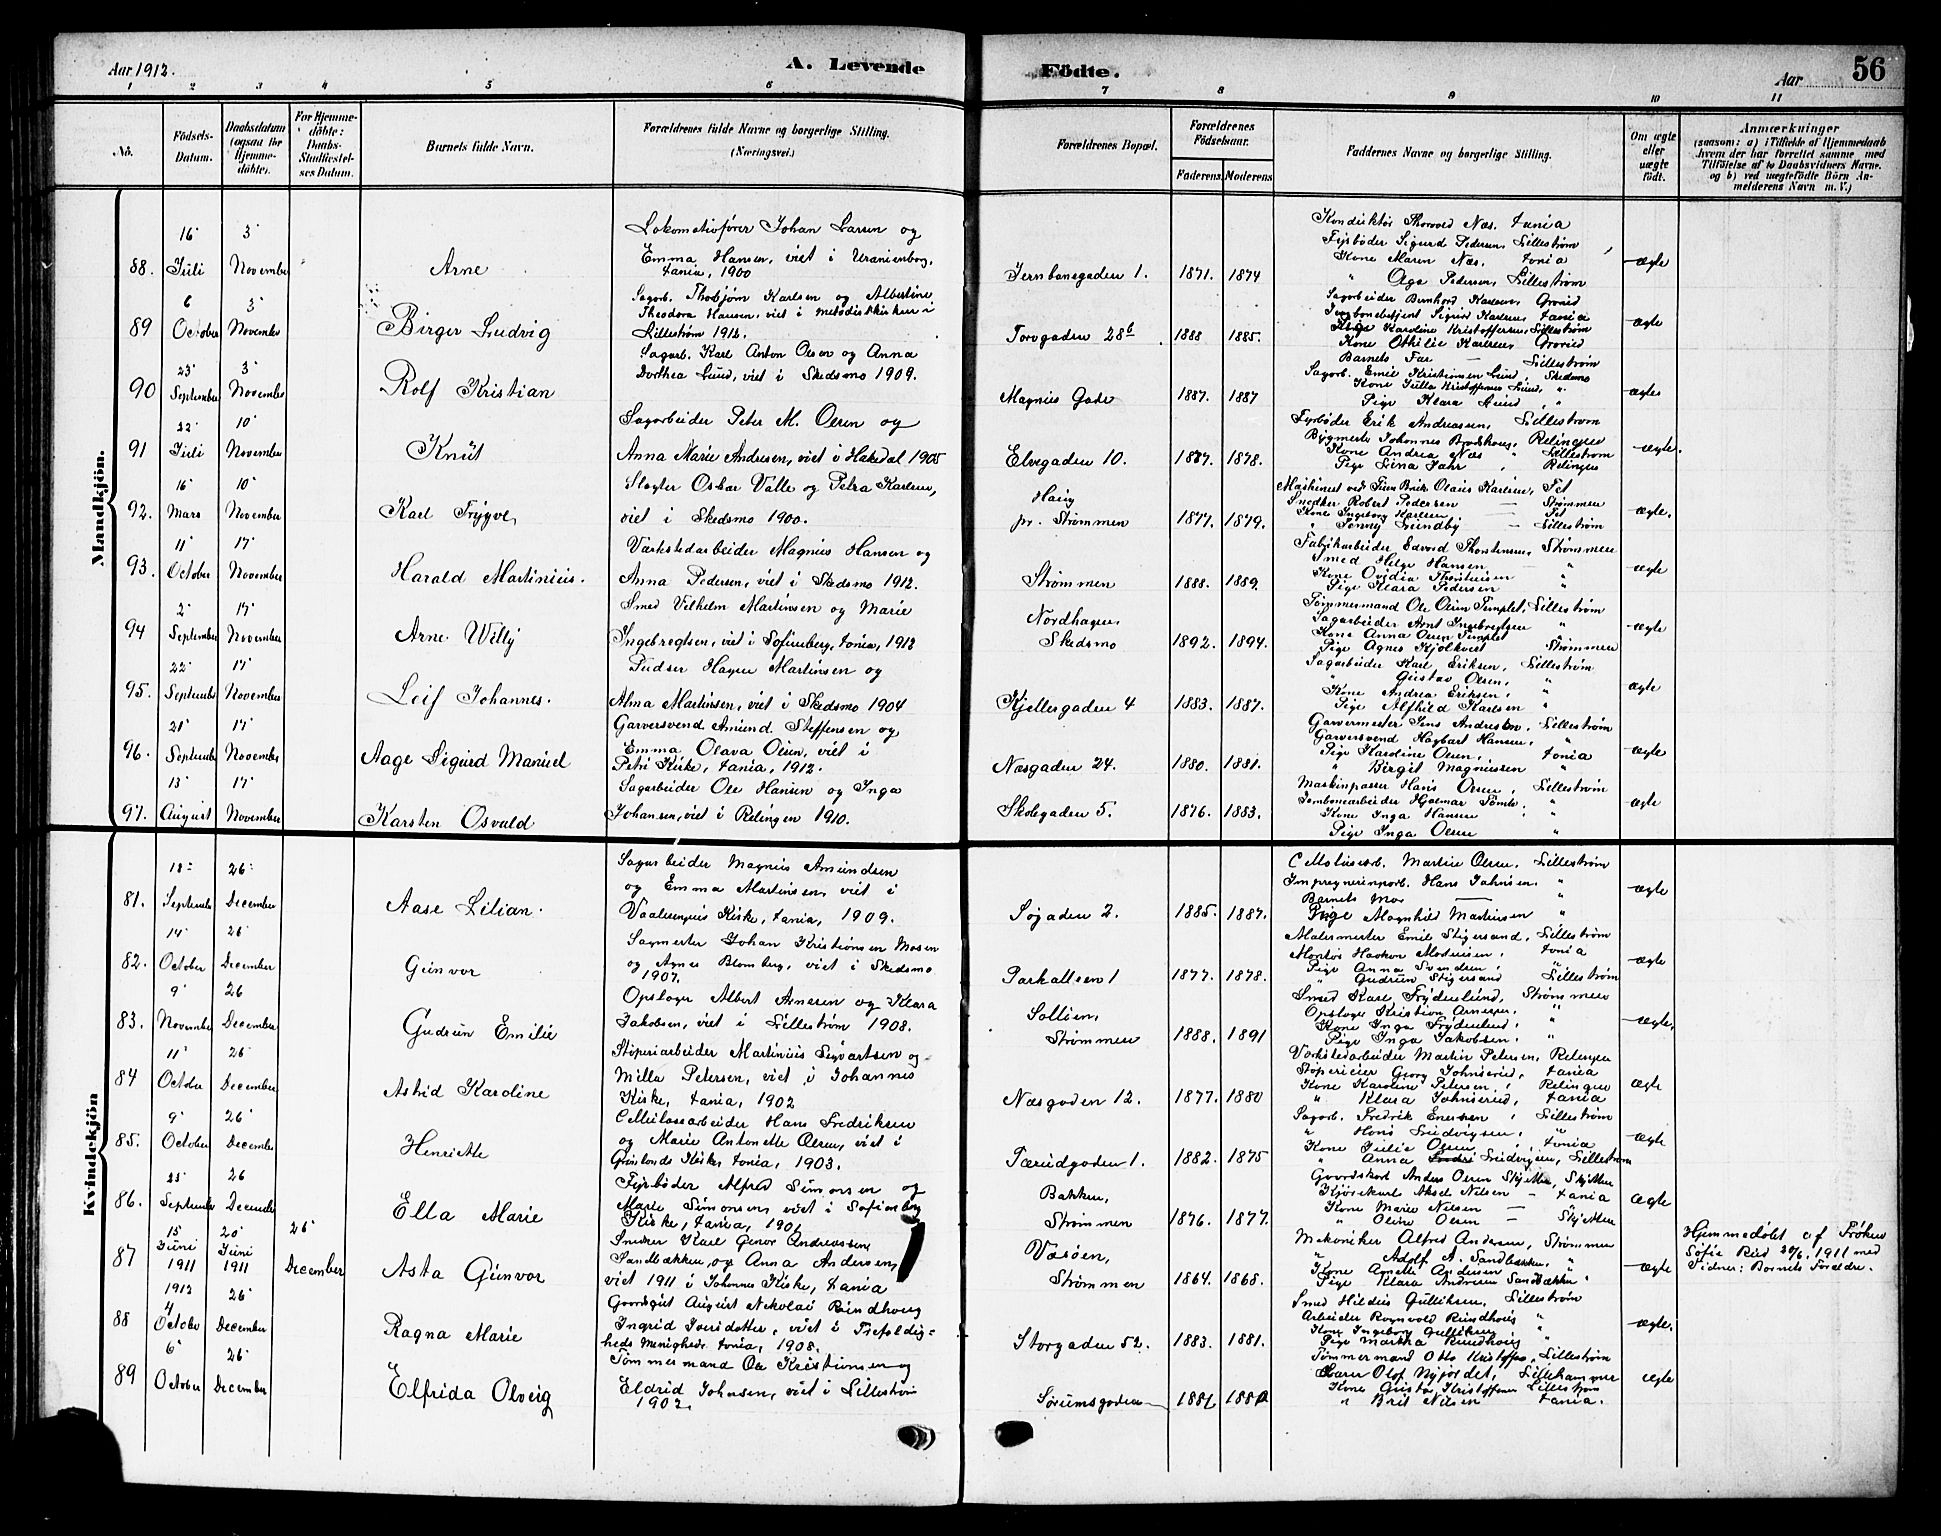 Aar 1912.
A. Levende
Födte.
Aar
56
1 2 3 4 5 6 7 8 9 10 11
No.
Födsels-Datum.
Daabsdatum (ogsaa för Hjemmedöbte).
For Hjemmedöbte: Daabs-Stadfæstelses Datum.
Barnets fulde Navn.
Forældrenes fulde Navne og borgerlige Stilling.
(Næringsvei.)
Forældrenes Bopæl.
Forældrenes Födselsaar.
Faderens. Moderens.
Faddernes Navne og borgerlige Stilling.
Om ægte eller uægte födt.
Anmærkninger
(saasom: a) i Tilfælde af Hjemmedaab hvem der har forrettet samme med Tilföielse af to Daabsvidners Navne. og b) ved uægtefödte Börn Anmelderens Navn m. V.)
Mandkjön.
88. 16 Juli 3 November
Arne
Lokomotivfører Johan Larsen og
Emma Hansen, viet i Uranienborg,
Kania, 1900
Jernbanegaden 1. 1871. 1874
Konduktør Thorvald Næs. Kania
Fyrbøder Sigurd Pedersen, Lillestrøm
Kone Maren Næs. Kania
" Olga Pedersen, Lillestrøm
ægte
89 6 October 3 November
Birger Ludvig
Sagarb. Thorbjørn Karlsen og Albertine
Theodora Hansen, viet i Metodistkirken i
Lillestrøm 1912.
Torvgaden 28b 1888 1885.
Sagarbeider Bernhard Karlsen, Grorud
Jernbanebetjent Sigurd Karlsen, Kania
Pige Karoline Kristoffersen, Lillestrøm
Kone Othilie Karlsen, Grorud
ægte
90 23 September 3 November
Rolf Kristian
Sagarb. Karl Anton Olsen og Anna
Dorthea Lund, viet i Skedsmo 1909.
Magnus Gade 1887. 1887
Barnets Far — Lillestrøm
Sagarb. Emil Kristiansen Lund, Skedsmo
Kone Julla Kristoffersen Lund, "
Pige Klara Lund, "
ægte
91 22 Juli 10 November
Knut
Sagarbeider Peter M. Olsen og
Anna Marie Andresen, viet i Hakedal 1905
Elvegaden 10. 1887. 1878.
Fyrbøder Erik Andreassen, Lillestrøm
Kone Andrea Næs " Lillestrøm
Pige Lina Jahr, Relingen
ægte.
92. 16 Mars 10 November
Karl Trygve
Slagter Oskar Valle og Petra Karlsen,
viet i Skedsmo 1900.
Haug
pr. Strømmen 1877. 1879.
Snedker Robert Pedersen — Strømmen
Kone Ingeborg Karlsen — Fet
" Jenny Lundby — Lillestrøm
ægte.
93. 11 October 17 November
Harald Martinius.
Værkstedarbeider Magnus Hansen og
Anna Pedersen, viet i Skedsmo 1912.
Strømmen 1888. 1889.
Fabrikarbeider Edvard Thorstensen, Strømmen
Smed Helge Hansen — "
Kone Ovidia Thorstensen "
Pige Klara Pedersen "
ægte
94 2 September 17 November
Arne Willy
Smed Vilhelm Martinsen og Marie
Ingebregtsen, viet i Sofienberg, Kania, 1912
Nordhagen,
Skedsmo 1892. 1894.
Tømmermand Ole Olsen Templet, Lillestrøm
Sagarbeider Arnt Ingebregtsen "
Kone Anna Olsen Templet "
Pige Agnes Kjølkvist Strømmen
ægte
95. 22 September 17 November
Leif Johannes.
Pudser Hagen Martinsen og
Alma Martinsen, viet i Skedsmo 1904
Kjellergaden 4 1883. 1887.
Sagarbeider Karl Eriksen, Lillestrøm
" Gustav Olsen, "
Kone Andrea Eriksen, "
Pige Alfhild Karlsen "
ægte
96. 21 September 17 November
Aage Sigurd Manuel
Garversvend Amund Steffensen og
Emma Olava Olsen, viet i
Petri Kirke, Kania, 1912.
Næsgaden 24. 1880. 1881.
Garvermester Jens Andresen, Lillestrøm
Garversvend Hagbart Hansen, "
Pige Karoline Olsen, Kania
" Birgit Magnussen "
ægte
97. 13 August 17 November
Karsten Osvald
Sagarbeider Ole Hansen og Inga
Johansen, viet i Relingen 1910.
Skolegaden 5. 1876. 1883.
Maskinpasser Hans Olsen, Lillestrøm
Jernbanearbeider Hjalmar Tomte, "
Kone Inga Hansen "
Pige Inga Olsen "
ægte
Kvindekjön
81. 18 September 26 December
Aase Lilian.
Sagarbeider Magnus Amundsen
og Emma Martinsen, viet i
Vaalerengens Kirke, Kania, 1909.
Søgaden 2. 1885. 1887.
Cellulosearb. Martin Olsen, Lillestrøm
Impregnerinparb. Hans Johnsen, "
Barnets Mor — "
Pige Magnhild Martinsen "
ægte
82. 14 October 26 December
Gunvor
Sagmester Johan Kristiansen Mosen
og Agnes Blomberg, viet i Skedsmo
1907.
Parkalleen 1 1877. 1878.
Malermester Emil Stigersand, Lillestrøm
Montør Haakon Madsen, Kania
Pige Anna Svendsen, "
" Gudrun Stigersand Lillestrøm
ægte
83. 9 November 26 December
Gudrun Emilie
Opslager Albert Arnesen og Klara
Jakobsen, viet i Lillestrøm 1908.
Sollien,
Strømmen 1888. 1891
Smed Karl Frydenlund, Strømmen
Opslager Kristian Arnesen, "
Kone Inga Frydenlund, "
Pige Inga Jakobsen, "
ægte,
84 11 October 26 December
Astrid Karoline
Støperiarbeider Martinius Sigvartsen og
Milla Petersen, viet i Johannes
Kirke, Kania, 1902
Næsgaden 12. 1877. 1880
Værkstedarbeider Martin Petersen, Relingen
Kone Karoline Petersen, Relingen
" Klara Johnserud, Kania
ægte
85. 9 October 26 December
Henriette
Cellulosearbeider Hans Fredriksen
og Marie Antonette Olsen, viet i
Grønlands Kirke, Kania, 1903.
Tærudgaden 1. 1882. 1875
Sagarb. Fredrik Enersen, Lillestrøm
" Hans Ludvigsen, "
Kone Julie Olsen, Kania
" Anna Ludvigsen, Lillestrøm
ægte
86. 25 September 26 December
Ella Marie
Fyrbøder Alfred Simonsen og
Marie Simonsen, viet i Sofienberg
Kirke, Kania, 1901
Bakken,
Strømmen 1876. 1877.
Gaardskarl Anders Olsen Skjetten, Skjetten
Kjørekarl Aksel Nilsen — Kania
Kone Marie Nilsen — "
" Oline Olsen — Skjetten
ægte
87 15 Juni 1911 20 Juni 1911 26 December
Asta Gunvor
Snedker Karl Genor Andreassen
Sandbækken, og Anna Andersen,
viet 1911 i Johannes Kirke, Kania
Vasøen,
Strømmen 1864. 1868.
Mekaniker Alfred Andersen, Strømmen
" Adolf A. Sandbækken, "
Kone Anette Andersen "
Pige Klara Andersen Sandbækken "
ægte
Hjemmedøbt af Frøken
Sofie Rud 20/6. 1911 med
Vidner: Barnets Forældre.
1912
88 4 October 26 December
Ragna Marie
Gaardsgut August Nikolai Rundhaug
Ingrid Iversdatter, viet i Trefoldig-
heds Menighed, Kania, 1908.
Storgaden 52. 1883. 1881.
Smed Hildus Gulliksen, Lillestrøm
Arbeider Ragnvald Rundhaug "
Kone Ingeborg Gulliksen "
Pige Martha Rundhaug "
ægte.
89 6 October 26 December
Elfrida Olveig
Tømmermand Ole Kristiansen og
Eldrid Johnsen, viet i Lillestrøm
1902.
Sørumsgaden 1881
Tømmermand Otto Kristoffs., Lillestrøm
Olof Nyjordet, Lillehammer
Kone Gusta Kristoffersen Lillestrøm
" Brit Nilsen Kania.
ægte